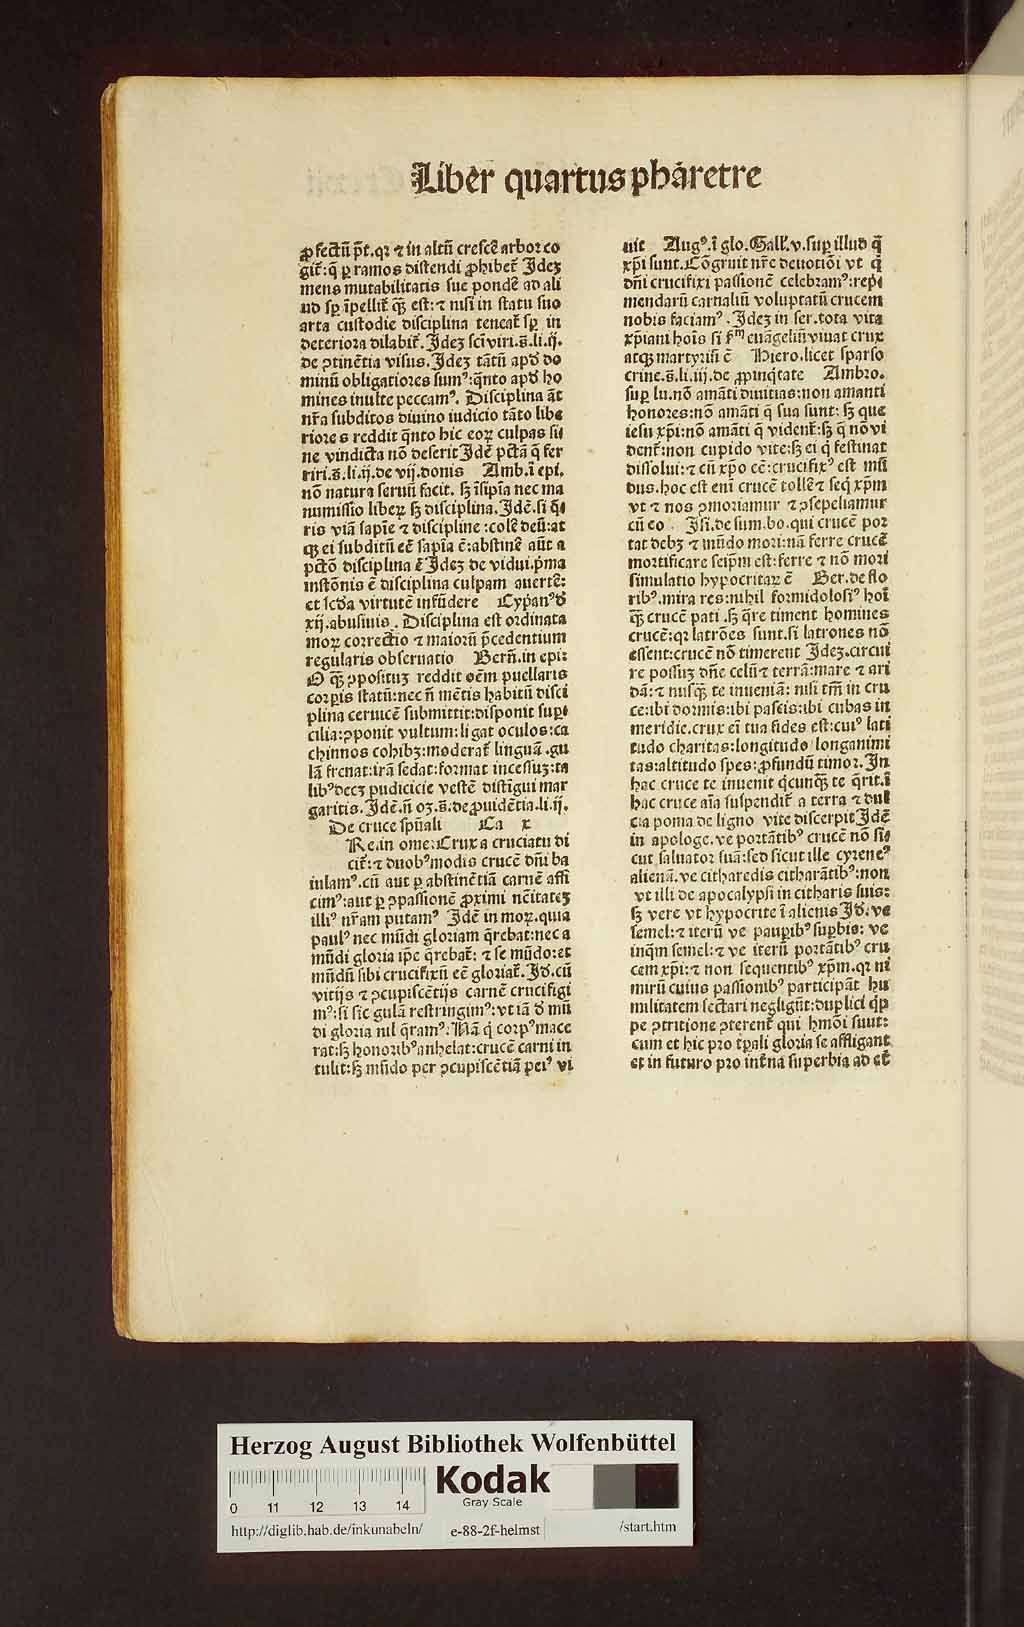 Liber quartus pharetre
ꝓfectū p̄t. qꝛ ⁊ in altū cresce᷒ arbor co
git᷑: q̄ ꝑ ramos distendi ꝓhibet᷑ Ideꝫ
mens mutabilitatis sue pondē ad ali
ud sꝑ īpellit᷑ qꝫ̄ est: ⁊ nisi in statu suo
arta custodie disciplina teneat᷑ sꝑ in
deteriora dilabit᷑. Ideꝫ sc̄i viri. s̄. li. ij.
de ꝯtinētia visus. Ideꝫ tātū apd̕ do
minū obligatiores sumꝰ: q̄nto apd̕ ho
mines inulte peccamꝰ. Disciplina āt
nr̄a subditos diuino iudicio tāto libe
riores reddit q̄nto hic eoꝝ culpas si
ne vindicta nō deserit Idē pctā q̄ fer
riri. s̄. li. ij. de vij. donis Amb. ī epi.
nō natura seruū facit. sꝫ īsipīa nec ma
numissio libeꝝ sꝫ disciplina. Idē. si q̄
ris viā sapīe ⁊ discipline: cole᷒ deū: at
qꝫ ei subditū eē sapīa ē: abstine᷒ aūt a
pctō disciplina ē Ideꝫ de vidui. p̄ma
instōnis ē disciplina culpam auertē:
et scd̕a virtutē infūdere Cyp̄anꝰ d̕
xij. abusiuis. Disciplina est ordinata
moꝝ correctio ⁊ maiorū p̄cedentium
regularis obseruatio Bern̄. in epi:
O qꝫ̄ ꝯpositуꝫ reddit oēm puellaris
corꝑis statū: nec n̄ mētis habitū disci
plina ceruicē submittit: disponit suꝑ
cilia: ꝯponit vultum: ligat oculos: ca
chinnos cohibꝫ: moderat᷑ linguā. gu
lā frenat: irā sedat: format incessuꝫ: ta
libꝰ decꝫ pudicicie vestē distīgui mar
garitis. Idē. n̄ oꝫ. s̄. de ꝓuidētia. li. ij.
De cruce sp̄uali Ca x
Re. in ome: Crux a cruciatu di
cit᷑: ⁊ duobꝰ modis crucē dn̄i ba
iulamꝰ. cū aut ꝑ abstinētiā carnē affi
cimꝰ: aut ꝑ ꝯpassionē ꝓximi nc̄itateꝫ
illiꝰ nr̄am putamꝰ Idē in moꝝ. quia
paulꝰ nec mūdi gloriam q̄rebat: nec a
mūdi gloria ip̄e q̄rebat᷑: ⁊ se mūdo: et
mūdū sibi crucifixū eē gloriat᷑. Id̕. cū
vitijs ⁊ ꝯcupiscētijs carnē crucifigi
mꝰ: si sic gulā restringimꝰ: vt iā d̕ mū
di gloria nil q̄ramꝰ: Nā q̄ corpꝰ mace
rat: sꝫ honoribꝰ anhelat: crucē carni in
tulit: sꝫ mūdo per ꝯcupiscētiā peiꝰ vi
uit Augꝰ. ī glo. Gall̕. v. suꝑ illud q̄
xp̄i sunt. Cōgruit nr̄e deuotiōi vt q̄
dn̄i crucifixi passionē celebramꝰ: rep̄i
mendarū carnaliū voluptatū crucem
nobis faciamꝰ. Ideꝫ in ser. tota vita
xp̄iani hoīs si ẜm euāgeliū viuat crux
atqꝫ martyriū ē Hiero. licet sparso
crine. s̄. li. iij. de ꝓpinq̄tate Ambro.
suꝑ lu. nō amāti diuitias: non amanti
honores: nō amāti q̄ sua sunt: sꝫ que
iesu xp̄i: nō amāti q̄ vident᷑: sꝫ q̄ nō vi
dent᷑: non cupido vite: sꝫ ei q̄ festinat
dissolui: ⁊ cū xp̄o eē: crucifixꝰ est mū
dus. hoc est eni crucē tollē ⁊ seq̄ xp̄m
vt ⁊ nos ꝯmoriamur ⁊ ꝯsepeliamur
cū eo. Isi. de sum. bo. qui crucē por
tat debꝫ ⁊ mūdo mori: nā ferre crucē
mortificare seip̄m est: ferre ⁊ nō mori
simulatio hypocritaꝝ ē Ber. de flo
ribꝰ. mira res: nihil formidolosiꝰ hoī
qꝫ̄ crucē pati. sꝫ q̄re timent homines
crucē: qꝛ latrōes sunt. si latrones nō
essent: crucē nō timerent Ideꝫ. circui
re possuꝫ dn̄e celū ⁊ terrā: mare ⁊ ari
dā: ⁊ nusqꝫ̄ te inueniā: nisi tm̄ in cru
ce: ibi dormis: ibi pascis: ibi cubas in
meridie. crux ei tua fides est: cuiꝰ lati
tudo charitas: longitudo longanimi
tas: altitudo spes: ꝓfundū timor. In
hac cruce te inuenit q̄cunqꝫ̄ te q̄rit. ī
hac cruce aīa suspendit᷑ a terra ⁊ dul
cia poma de ligno vite discerpit Idē
in apologe. ve portātibꝰ crucē nō si
cut saluator suā: sed sicut ille cyreneꝰ
alienā. ve citharedis citharātibꝰ: non
vt illi de apocalypsi in citharis suis:
sꝫ vere vt hypocrite ī alienis Id̕. ve
semel: ⁊ iterū ve pauꝑibꝰ suꝑbis: ve
inq̄m semel: ⁊ ve iterū portātibꝰ cru
cem xp̄i: ⁊ non sequentibꝰ xp̄m. qꝛ ni
mirū cuius passionibꝰ participāt hu
militatem sectari negligūt: duplici q̄p
pe ꝯtritione ꝯterent᷑ qui hmōi sunt:
cum et hic pro tp̄ali gloria se affligant
et in futuro pro int̄na superbia ad et̄
Herzog August Bibliothek Wolfenbüttel
0 11 12 13 14
Kodak
Gray Scale
http://diglib.hab.de/inkunabeln/ e-88-2f-helmst /start.htm